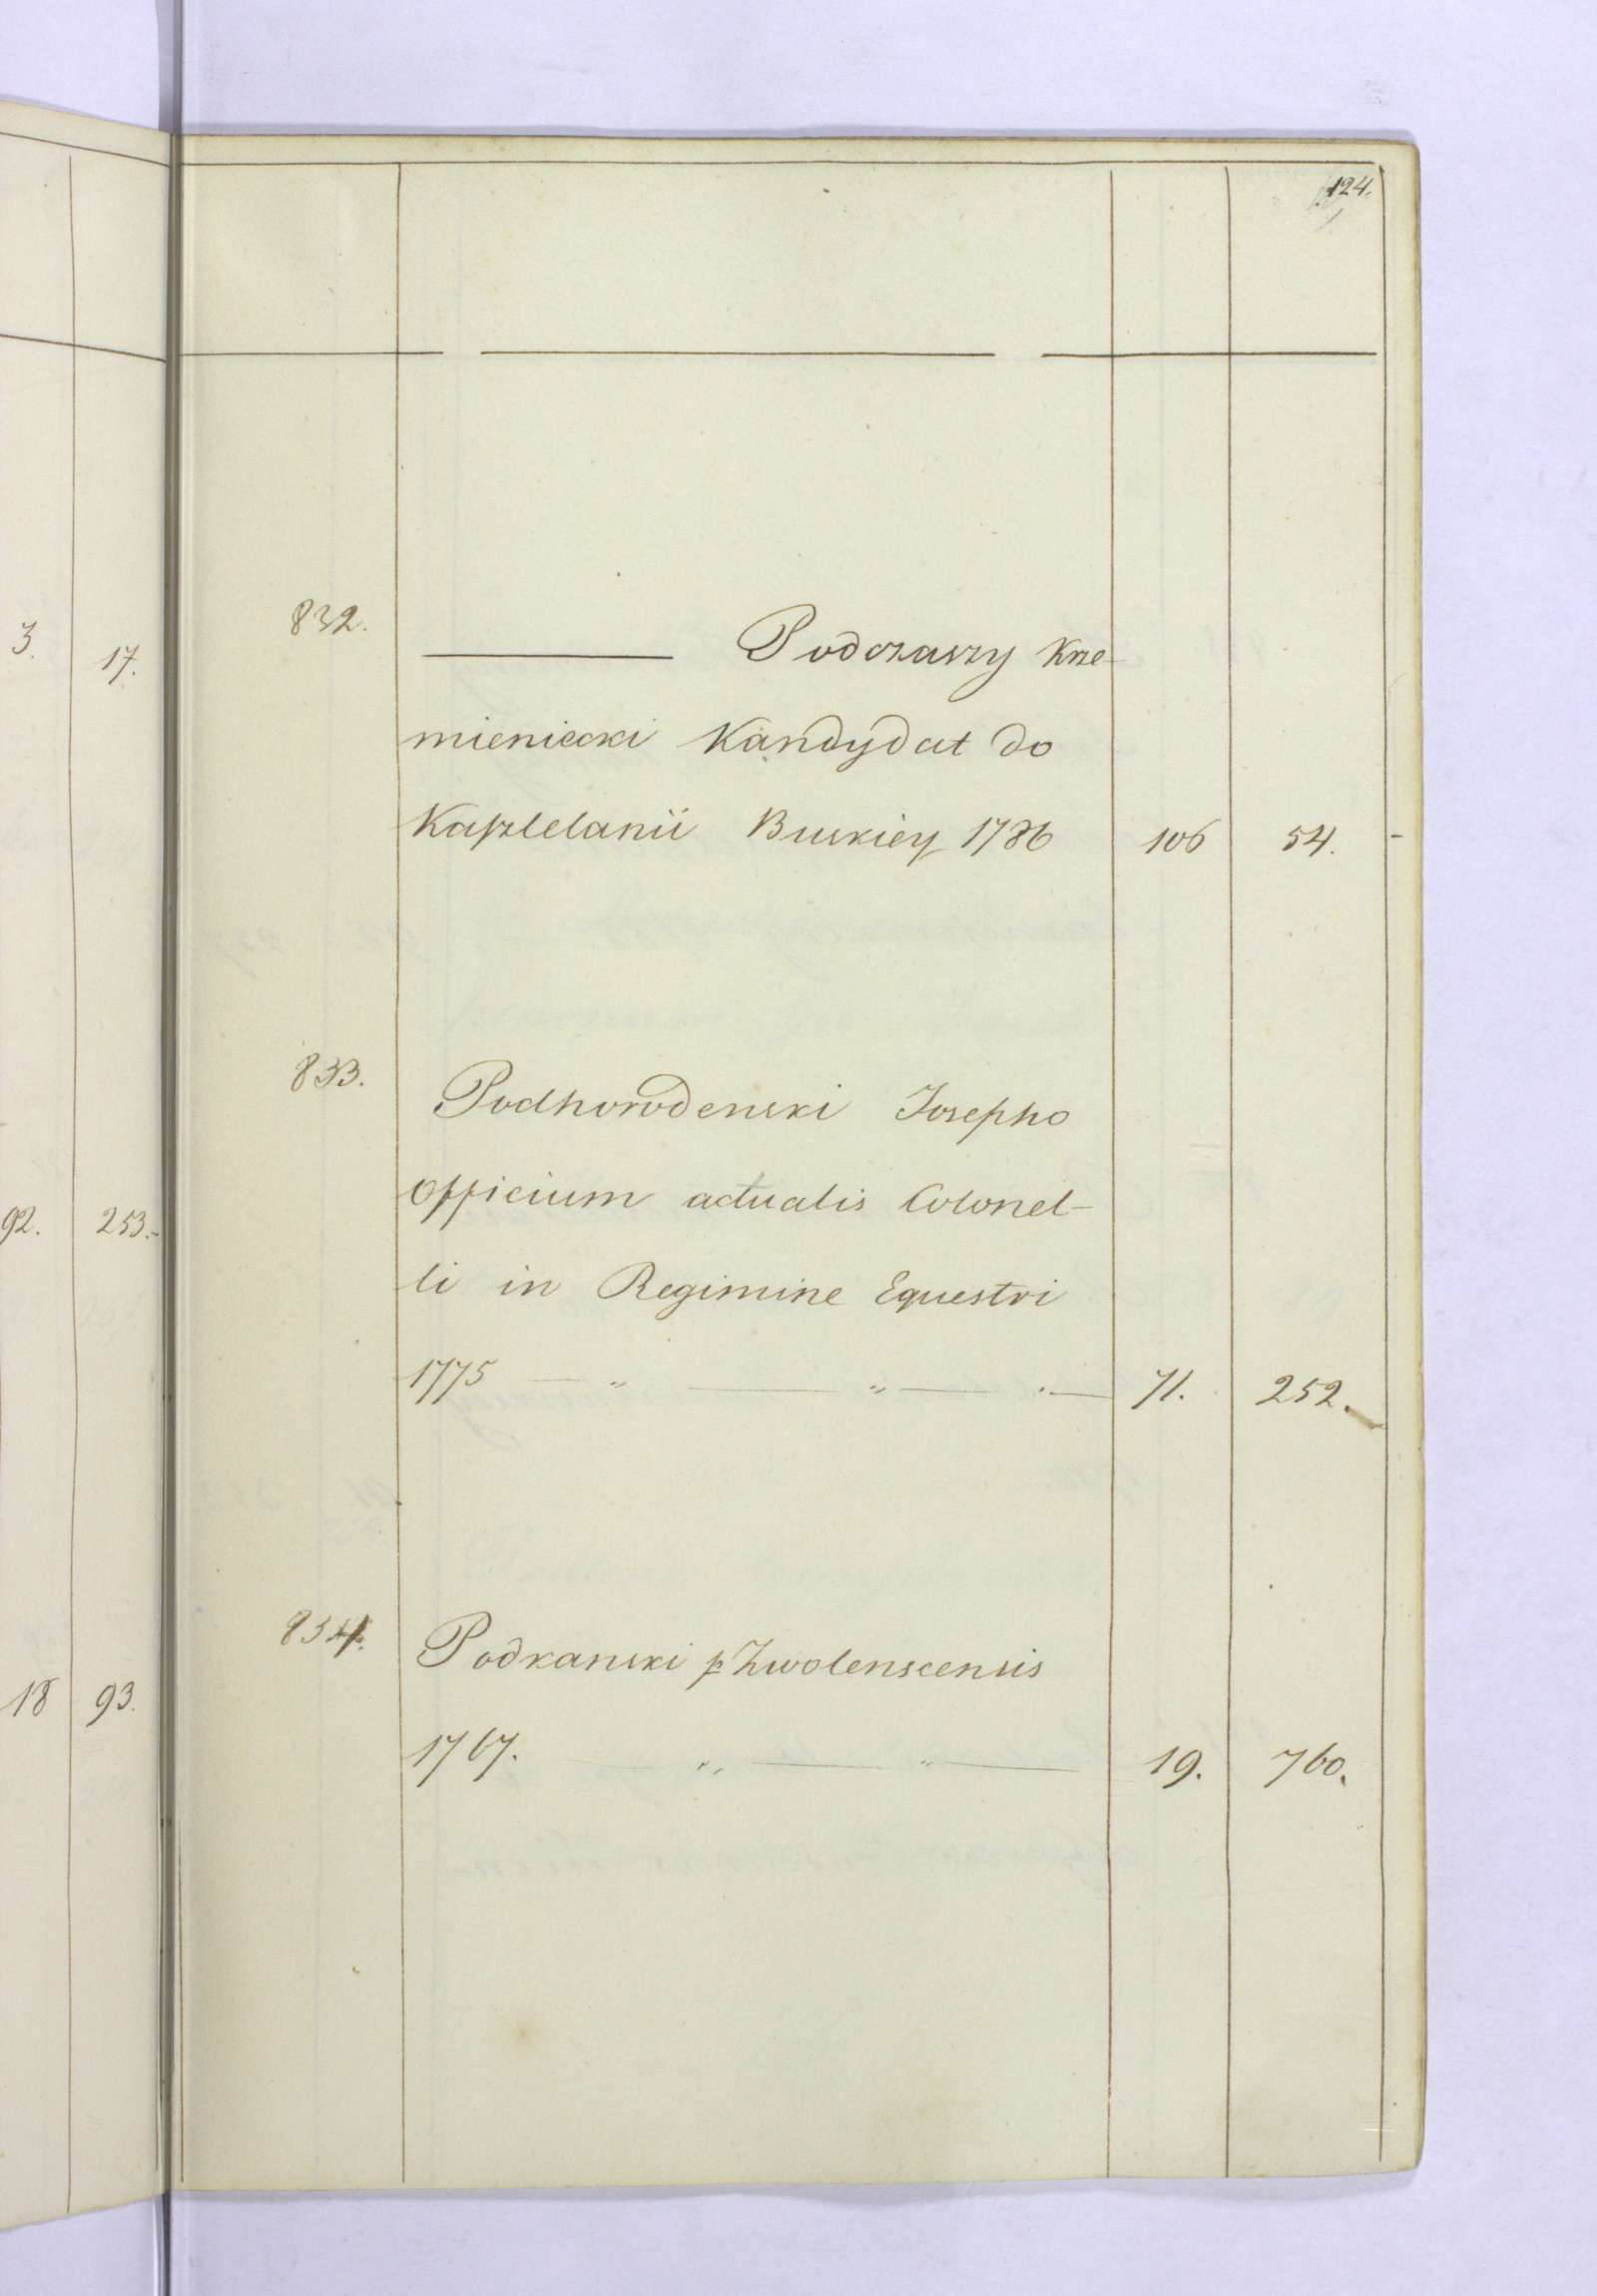 124.
3. 17.
832. ——— Podczaszy Krze-
mieniecki Kandydat do
Kasztelanii Buskiey 1786 106 54. -
833. Podhorodenski Josepho
92. 253.- Officium actualis Colonel-
li in Regimine Equestri
1775 — „ — „ — „ — 71. 252.
834. Podkanski p Zwolenscensis
18 93.
1767. — „ — „ — 19. 760.